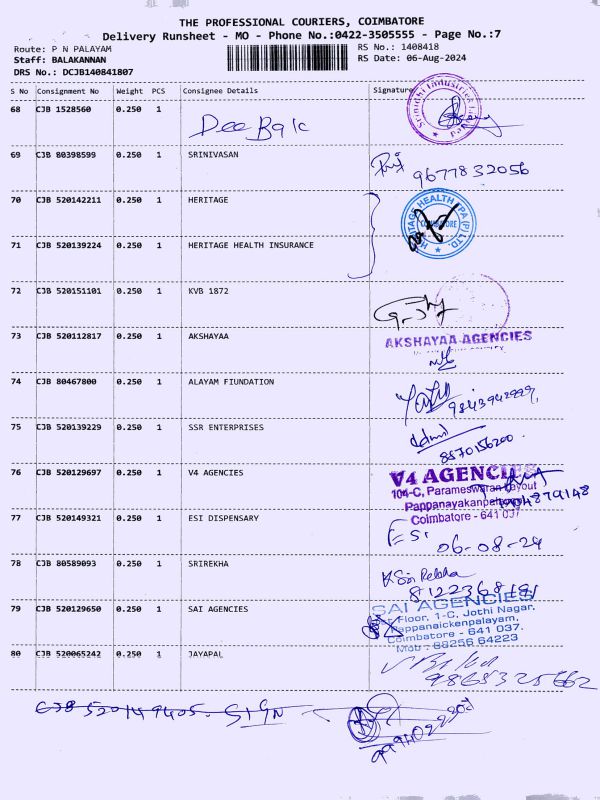 THE PROFESSIONAL COURIERS, COIMBATORE
Delivery Runsheet - MO - Phone No.:0422-3505555 - Page No.:7
Route: P N PALAYAM
RS No.: 1408418
Staff: BALAKANNAN
RS Date: 06-Aug-2024
DRS No.: DCJB140841807
S No Consignment No Weight PCS Consignee Details Signature
68 CJB 1528560 0.250 1
69 CJB 80398599 0.250 1 SRINIVASAN
9677832056
70 CJB 520142211 0.250 1 HERITAGE
HERITAGE HEALTH TPA (P) LTD.
COIMBATORE
71 CJB 520139224 0.250 1 HERITAGE HEALTH INSURANCE
72 CJB 520151101 0.250 1 KVB 1872
73 CJB 520112817 0.250 1 AKSHAYAA
AKSHAYAA AGENCIES
74 CJB 80467800 0.250 1 ALAYAM FIUNDATION
75 CJB 520139229 0.250 1 SSR ENTERPRISES
8870156200
76 CJB 520129697 0.250 1 V4 AGENCIES
V4 AGENCIES
104-C, Parameswaran Layout
Pappanayakanpalayam
Coimbatore - 641 037
77 CJB 520149321 0.250 1 ESI DISPENSARY
ESI
06-08-24
78 CJB 80589093 0.250 1 SRIREKHA
79 CJB 520129650 0.250 1 SAI AGENCIES
SAI AGENCIES
Floor, 1-C, Jothi Nagar,
Pappanaickenpalayam,
Coimbatore - 641 037.
Mob : 98256 64223
80 CJB 520065242 0.250 1 JAYAPAL
9865325662
CJB 520149405. SIGN